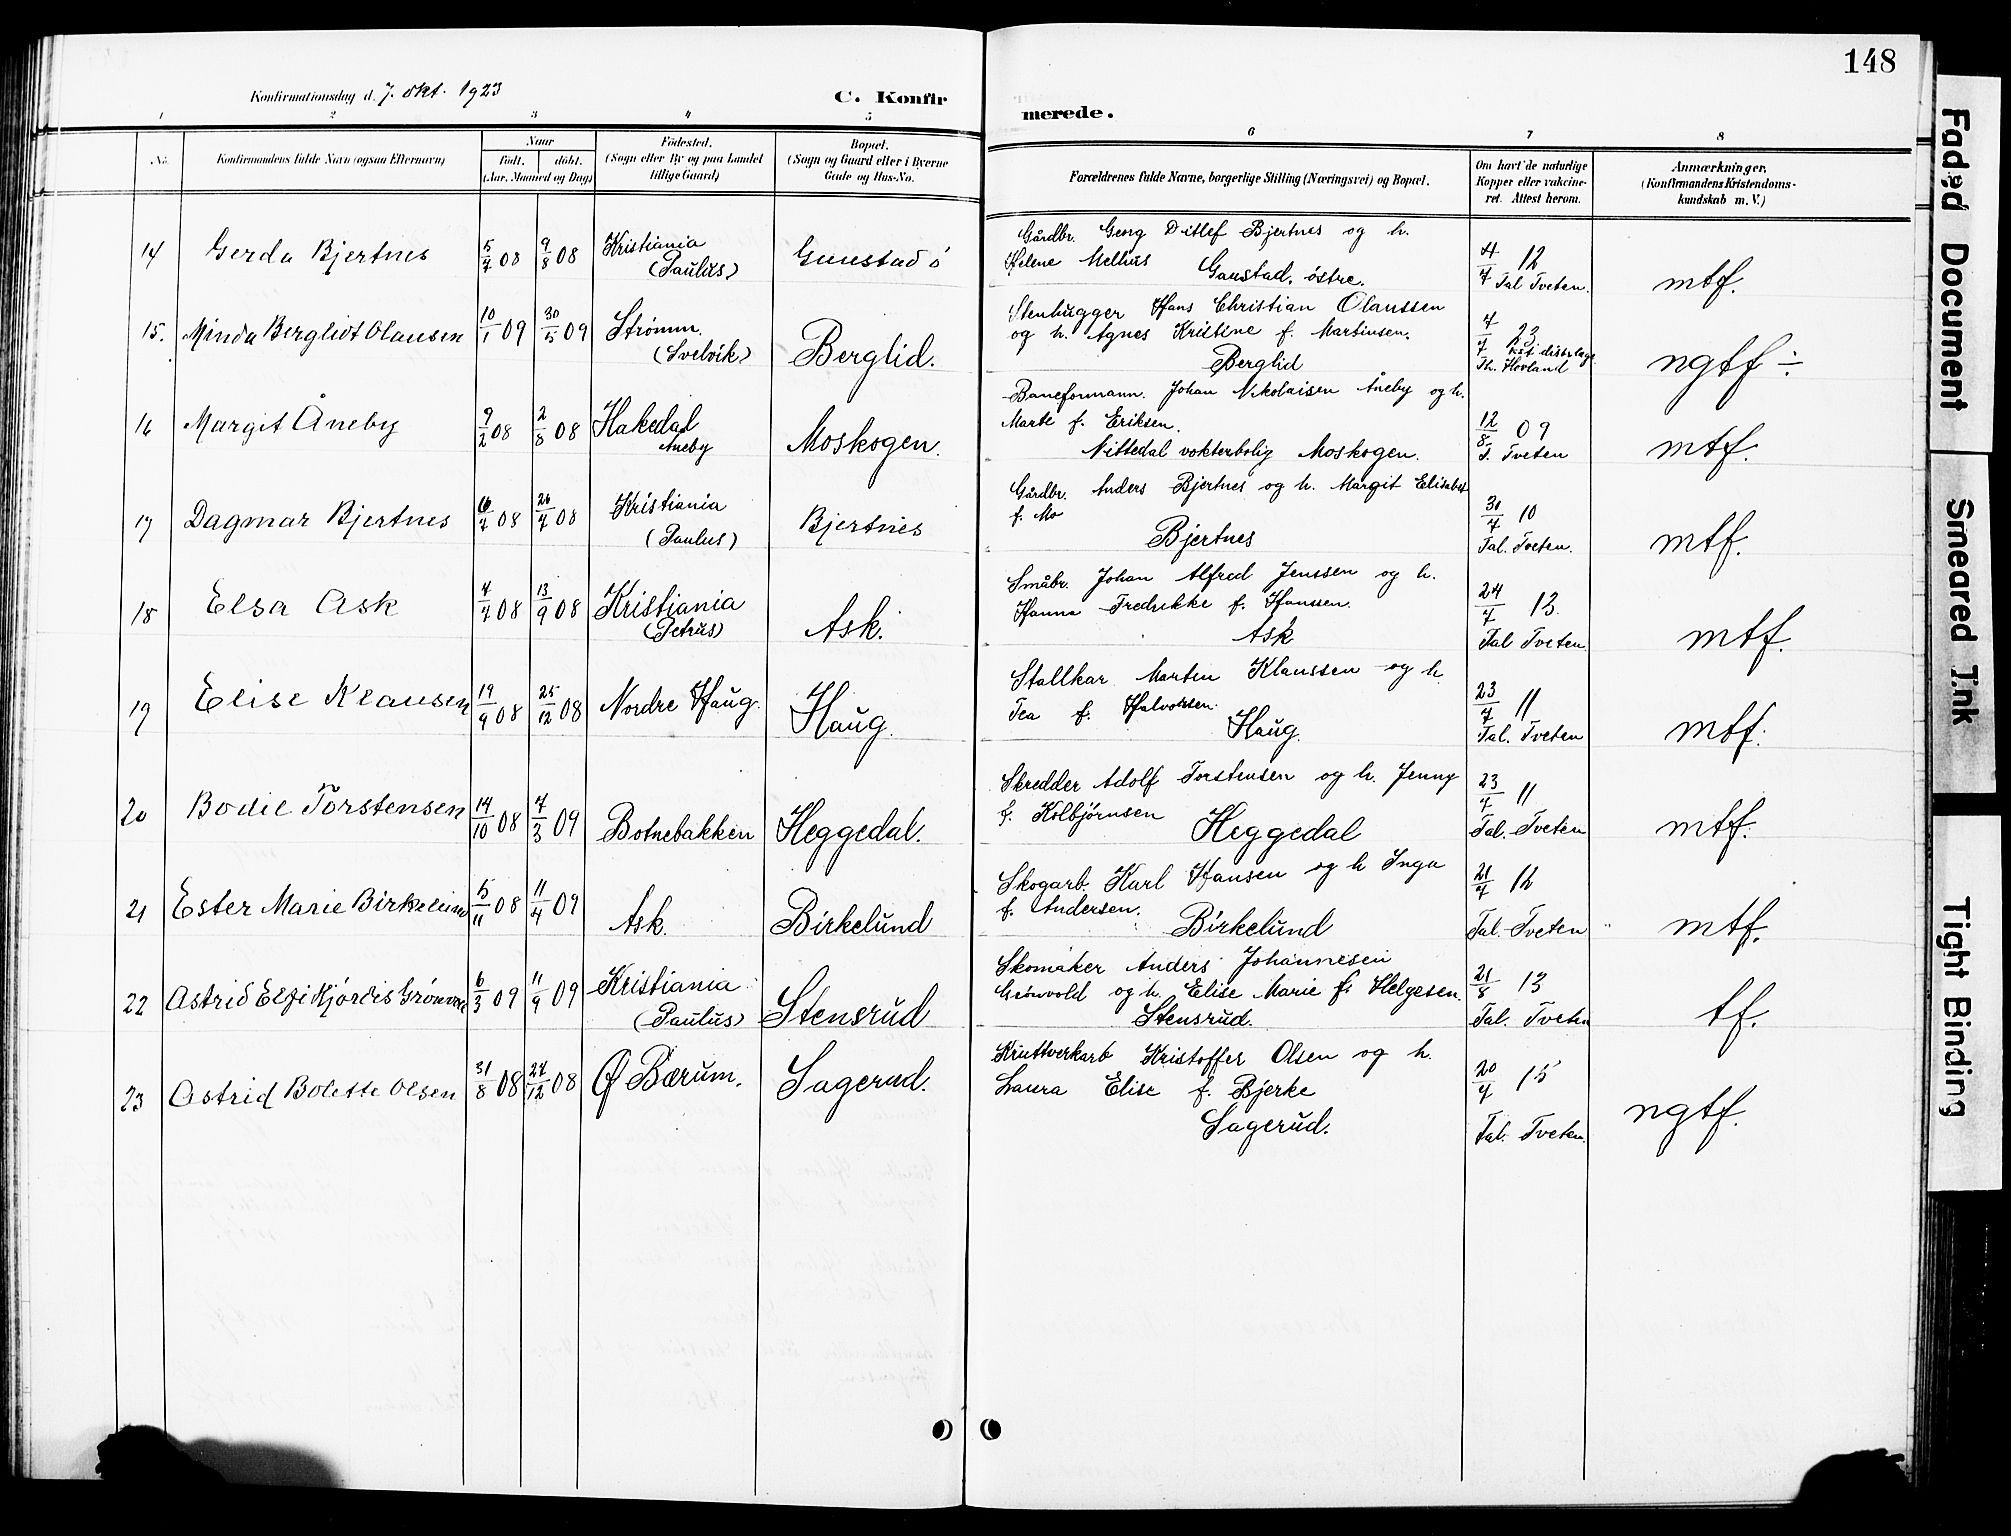 148
Konfirmationsdag d. 7. okt. 1923
C. Konfirmerede.
1 2 3 4 5 6 7 8
No.
Konfirmandens fulde Navn (ogsaa Efternavn)
Naar
født. døbt.
(Aar, Maaned og Dag)
Fødested.
(Sogn eller By og paa Landet
tillige Gaard)
Bopæl.
(Sogn og Gaard eller i Byerne
Gade og Hus-No.
Forældrenes fulde Navne, borgerlige Stilling (Næringsvei) og Bopæl.
Om havt de naturlige
Kopper eller vakcine-
ret. Attest herom.
Anmærkninger.
(Konfirmandens Kristendoms-
kundskab m. V.)
14 Gerda Bjertnes 5/7 08 9/8 08 Kristiania (Paulus) Gaustad ø
Gårdbr. Georg Ditlef Bjertnes og h.
Helene Melhus Gaustad, østre.
4/7 12 Tal Tveten. mtf.
15. Minda Berglidt Olausen 10/1 09 30/5 09 Strømm. (Svelvik) Berglid.
Stenhugger Hans Christian Olaussen
og h. Agnes Kristine f. Martinsen.
Berglid
7/7 23 Th. Hovland ngtf ÷
16 Margit Åneby 9/2 08 2/8 08 Hakedal Aneby Moskogen.
Baneformann. Johan Nikolaisen Åneby og h.
Marte f. Eriksen.
Nittedal vokterbolig Moskogen.
12/8 09 T. Tveten mtf.
17 Dagmar Bjertnes 6/7 08 26/7 08 Kristiania (Paulus) Bjertnes
Gårdbr. Anders Bjertnes og h. Margit Elisabet
f. Mo
Bjertnes
30/7 10 Tal. Tveten. mtf.
18 Elsa Ask 4/7 08 13/9 08 Kristiania (Petrus) Ask.
Småbr. Johan Alfred Jenssen og h.
Hanna Fredrikke f. Hanssen.
Ask
24/7 13. Tal Tveten. mtf.
19 Elise Klausen 19/9 08 25/12 08 Nordre Haug. Haug.
Stallkar Morten Klaussen og h
Tea f. Halvorsen.
Haug.
23/7 11 Tal. Tveten mtf.
20 Bodil Torstensen 14/10 08 7/3 09 Botnebakken Heggedal.
Skredder Adolf Torstensen og h. Jenny
f. Kolbjørnsen
Heggedal
23/7 11 Tal. Tveten mtf.
21 Ester Marie Birkelund 5/11 08 11/4 09 Ask. Birkelund
Skogarb. Karl Hansen og h Inga
f. Andersen.
Birkelund
21/7 12 Tal. Tveten mtf.
22 Astrid Elfi Hjørdis Grønvold 6/3 09 11/9 09 Kristiania (Paulus) Stensrud
Skomaker Anders Johannesen
Grønvold og h. Elise Marie f. Helgesen.
Stensrud.
21/8 13 Tal. Tveten tf.
23 Astrid Bolette Olsen 31/8 08 27/12 08 Ø Bærum. Sagerud.
Kruttverkarb Kristoffer Olsen og h.
Laura Elise f. Bjerke
Sagerud.
20/7 15 Tal. Tveten. ngtf.
Faded Document
Smeared Ink
Tight Binding